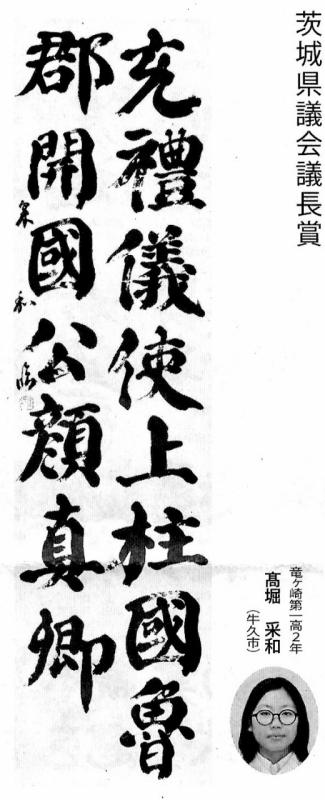 茨城県議会議長賞
充禮儀使上柱國魯
郡開國公顔真卿
采和臨
竜ヶ崎第一高2年
髙堀 采和
(牛久市)